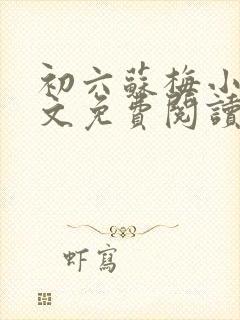 初六蘇梅小
文免費閱讀
虾寫